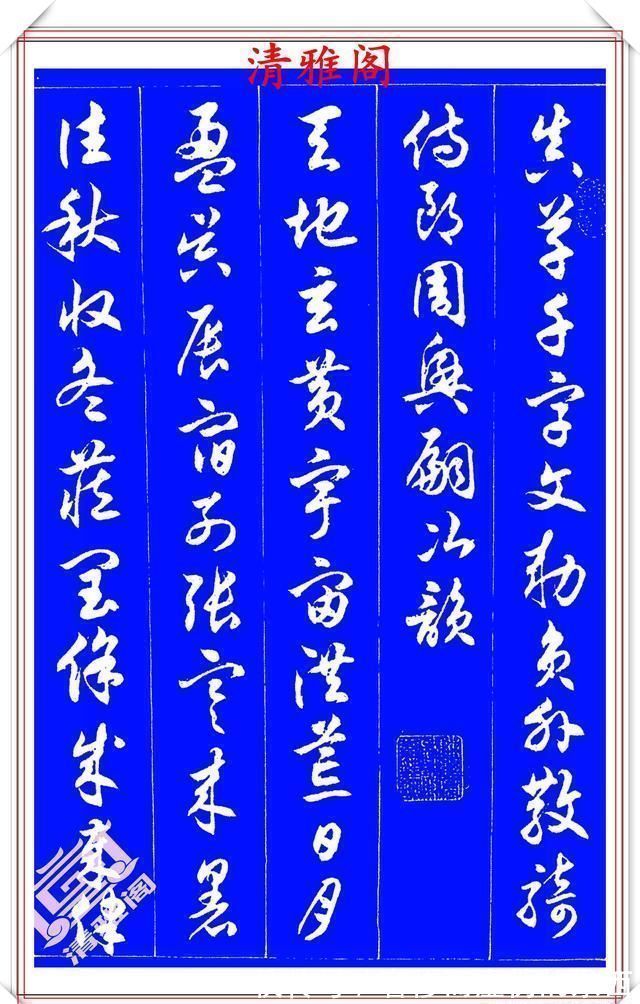 清雅阁
真草千字文勅員外散騎
侍郎周興嗣次韻
天地玄黃宇宙洪荒日月
盈昃辰宿列張寒来暑
往秋收冬藏閏餘成歲律
清雅阁